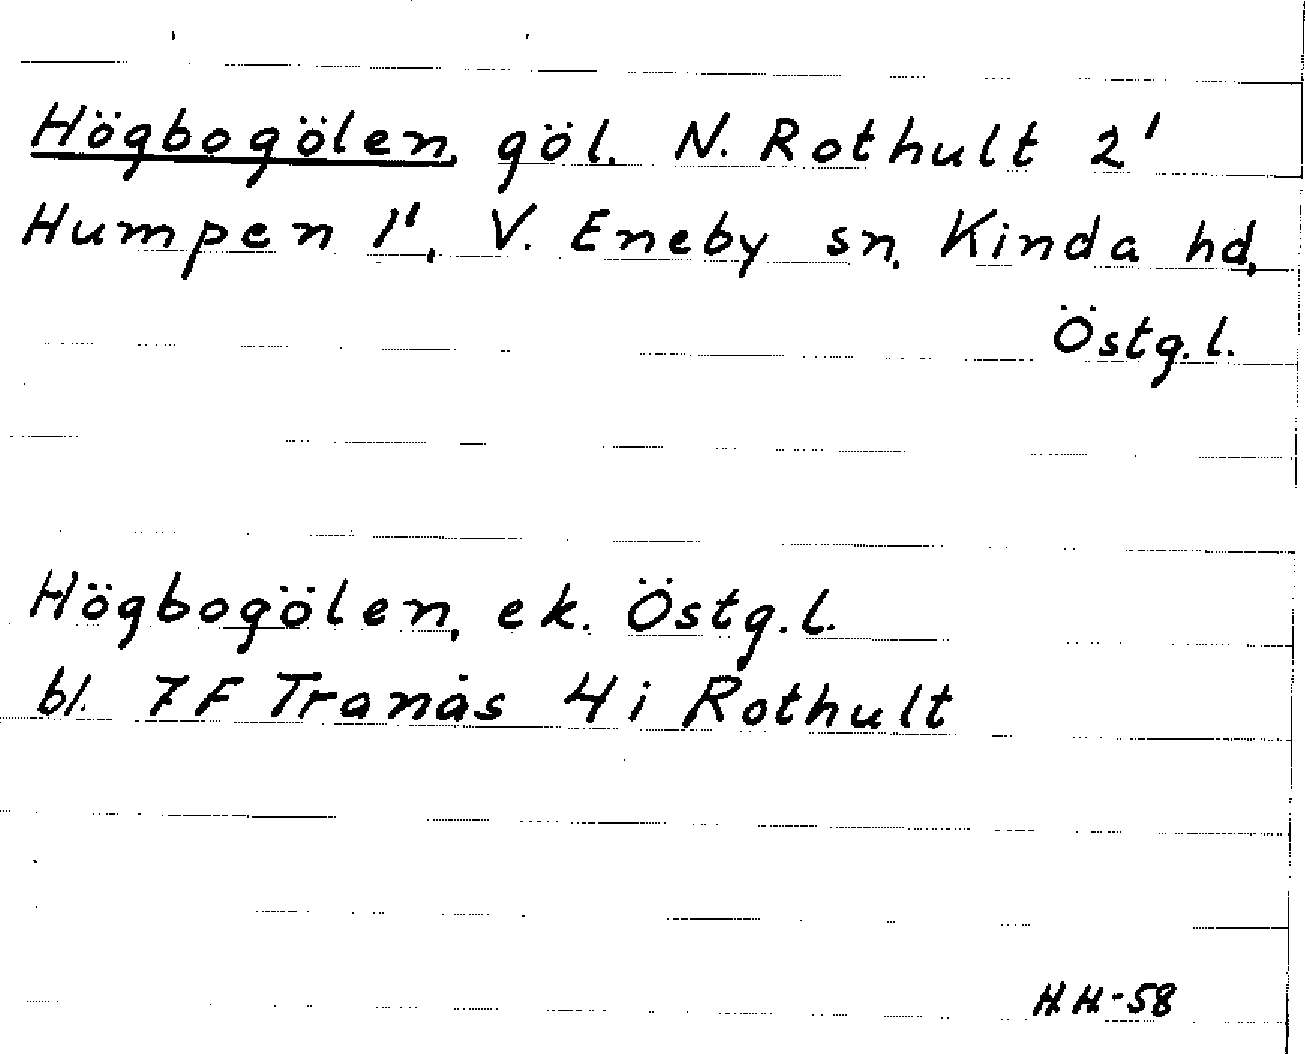 Högbogölen, göl. N. Rothult 2'
Humpen 1', V. Eneby sn, Kinda hd,
Östg.l.
Högbogölen, ek. Östg.l.
bl. 7F Tranås 4i Rothult
H.H-58